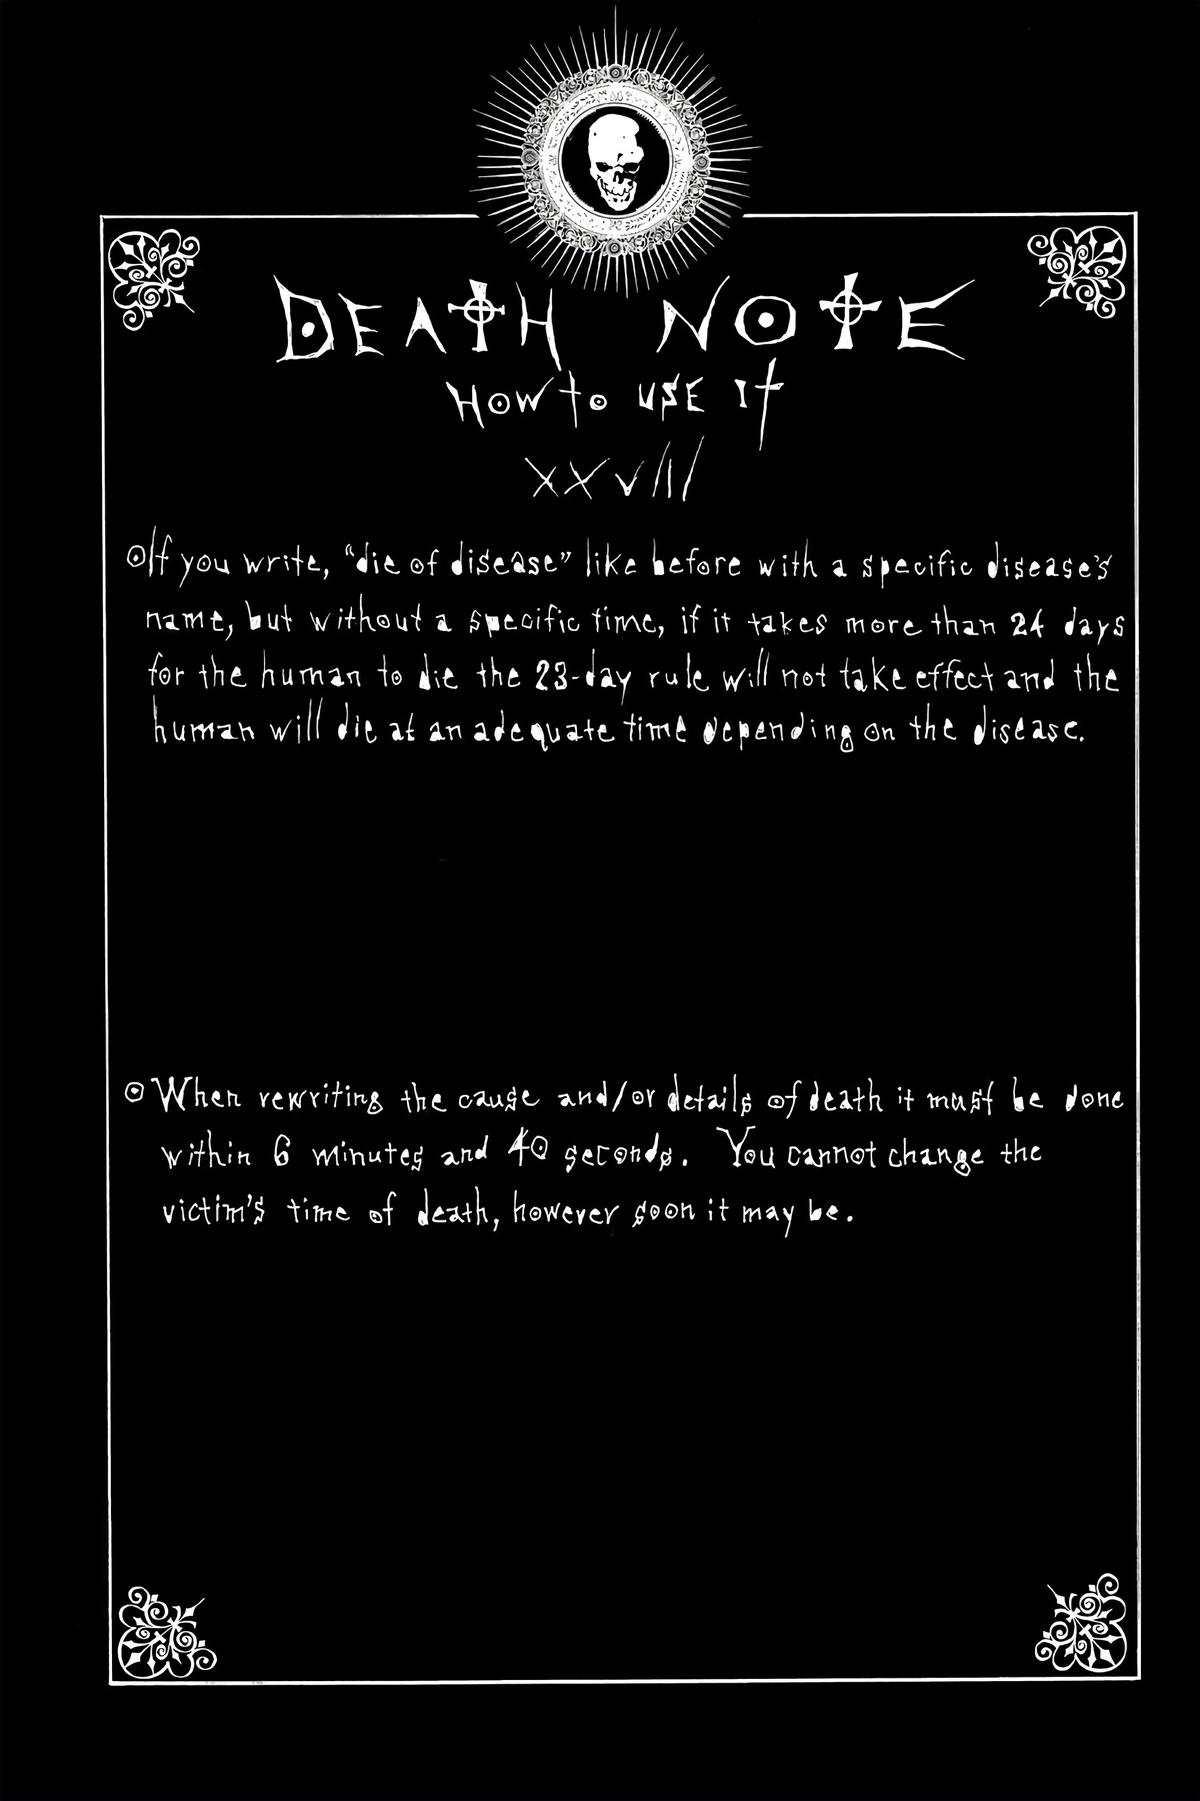 DEATH NOTE
HOW to USE It
XXVIII
If you write, “die of disease” like before with a specific disease's
name, but without a specific time, if it takes more than 24 days
for the human to die the 23-day rule will not take effect and the
human will die at an adequate time depending on the disease.
When rewriting the cause and/or details of death it must be done
within 6 minutes and 40 seconds. You cannot change the
victim's time of death, however soon it may be.